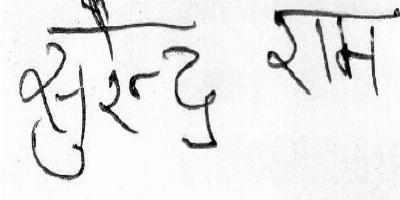 सुरेन्द्र राम